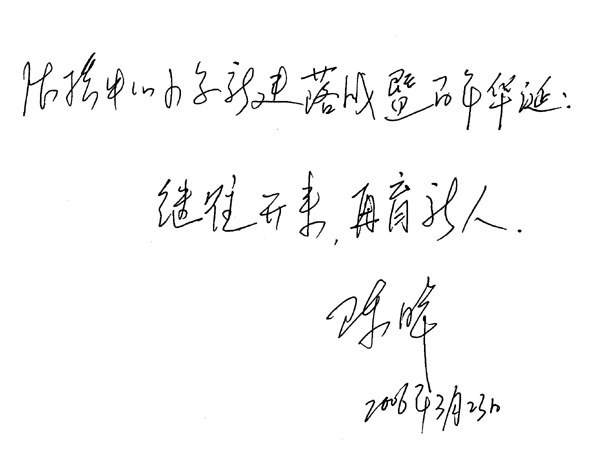 中心小学新建落成暨百年华诞：
继往开来，再育新人.
陈晖
2006年3月23日